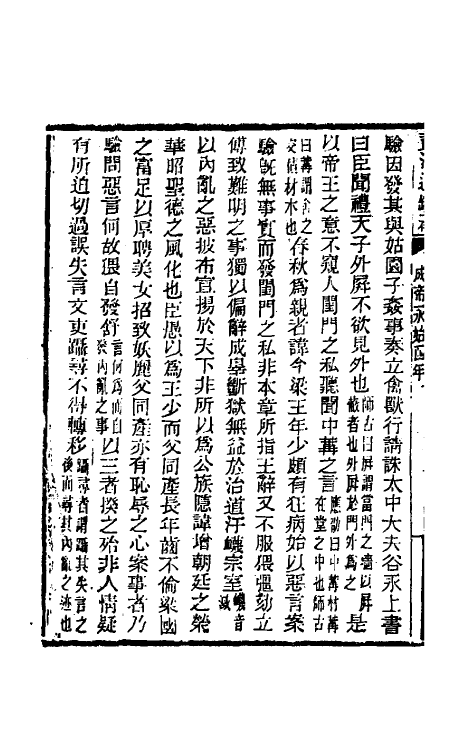 驗因發其與姑園子姦事奏立禽獸行請誅太中大夫谷永上書
曰臣聞禮天子外屏不欲見外也師古曰屏謂當門之牆以屏蔽者也外屏於門外爲之是
以帝王之意不窺人閨門之私聽聞中冓之言應劭曰中冓材冓在堂之中也師古
曰冓謂舍之交積材木也春秋爲親者諱今梁王年少頗有狂病始以惡言案
驗旣無事實而發閨門之私非本章所指王辭又不服猥彊劾立
傅致難明之事獨以偏辭成辠斷獄無益於治道汙衊宗室衊音滅
以內亂之惡披布宣揚於天下非所以爲公族隱諱增朝廷之榮
華昭聖德之風化也臣愚以爲王少而父同產長年齒不倫梁國
之富足以厚聘美女招致妖麗父同產亦有恥辱之心案事者乃
驗問惡言何故猥自發舒言何爲而自發內亂之事以三者揆之殆非人情疑
有所迫切過誤失言文吏躡尋不得轉移躡尋者謂躡其失言之後而尋其內亂之迹也
成帝永始四年